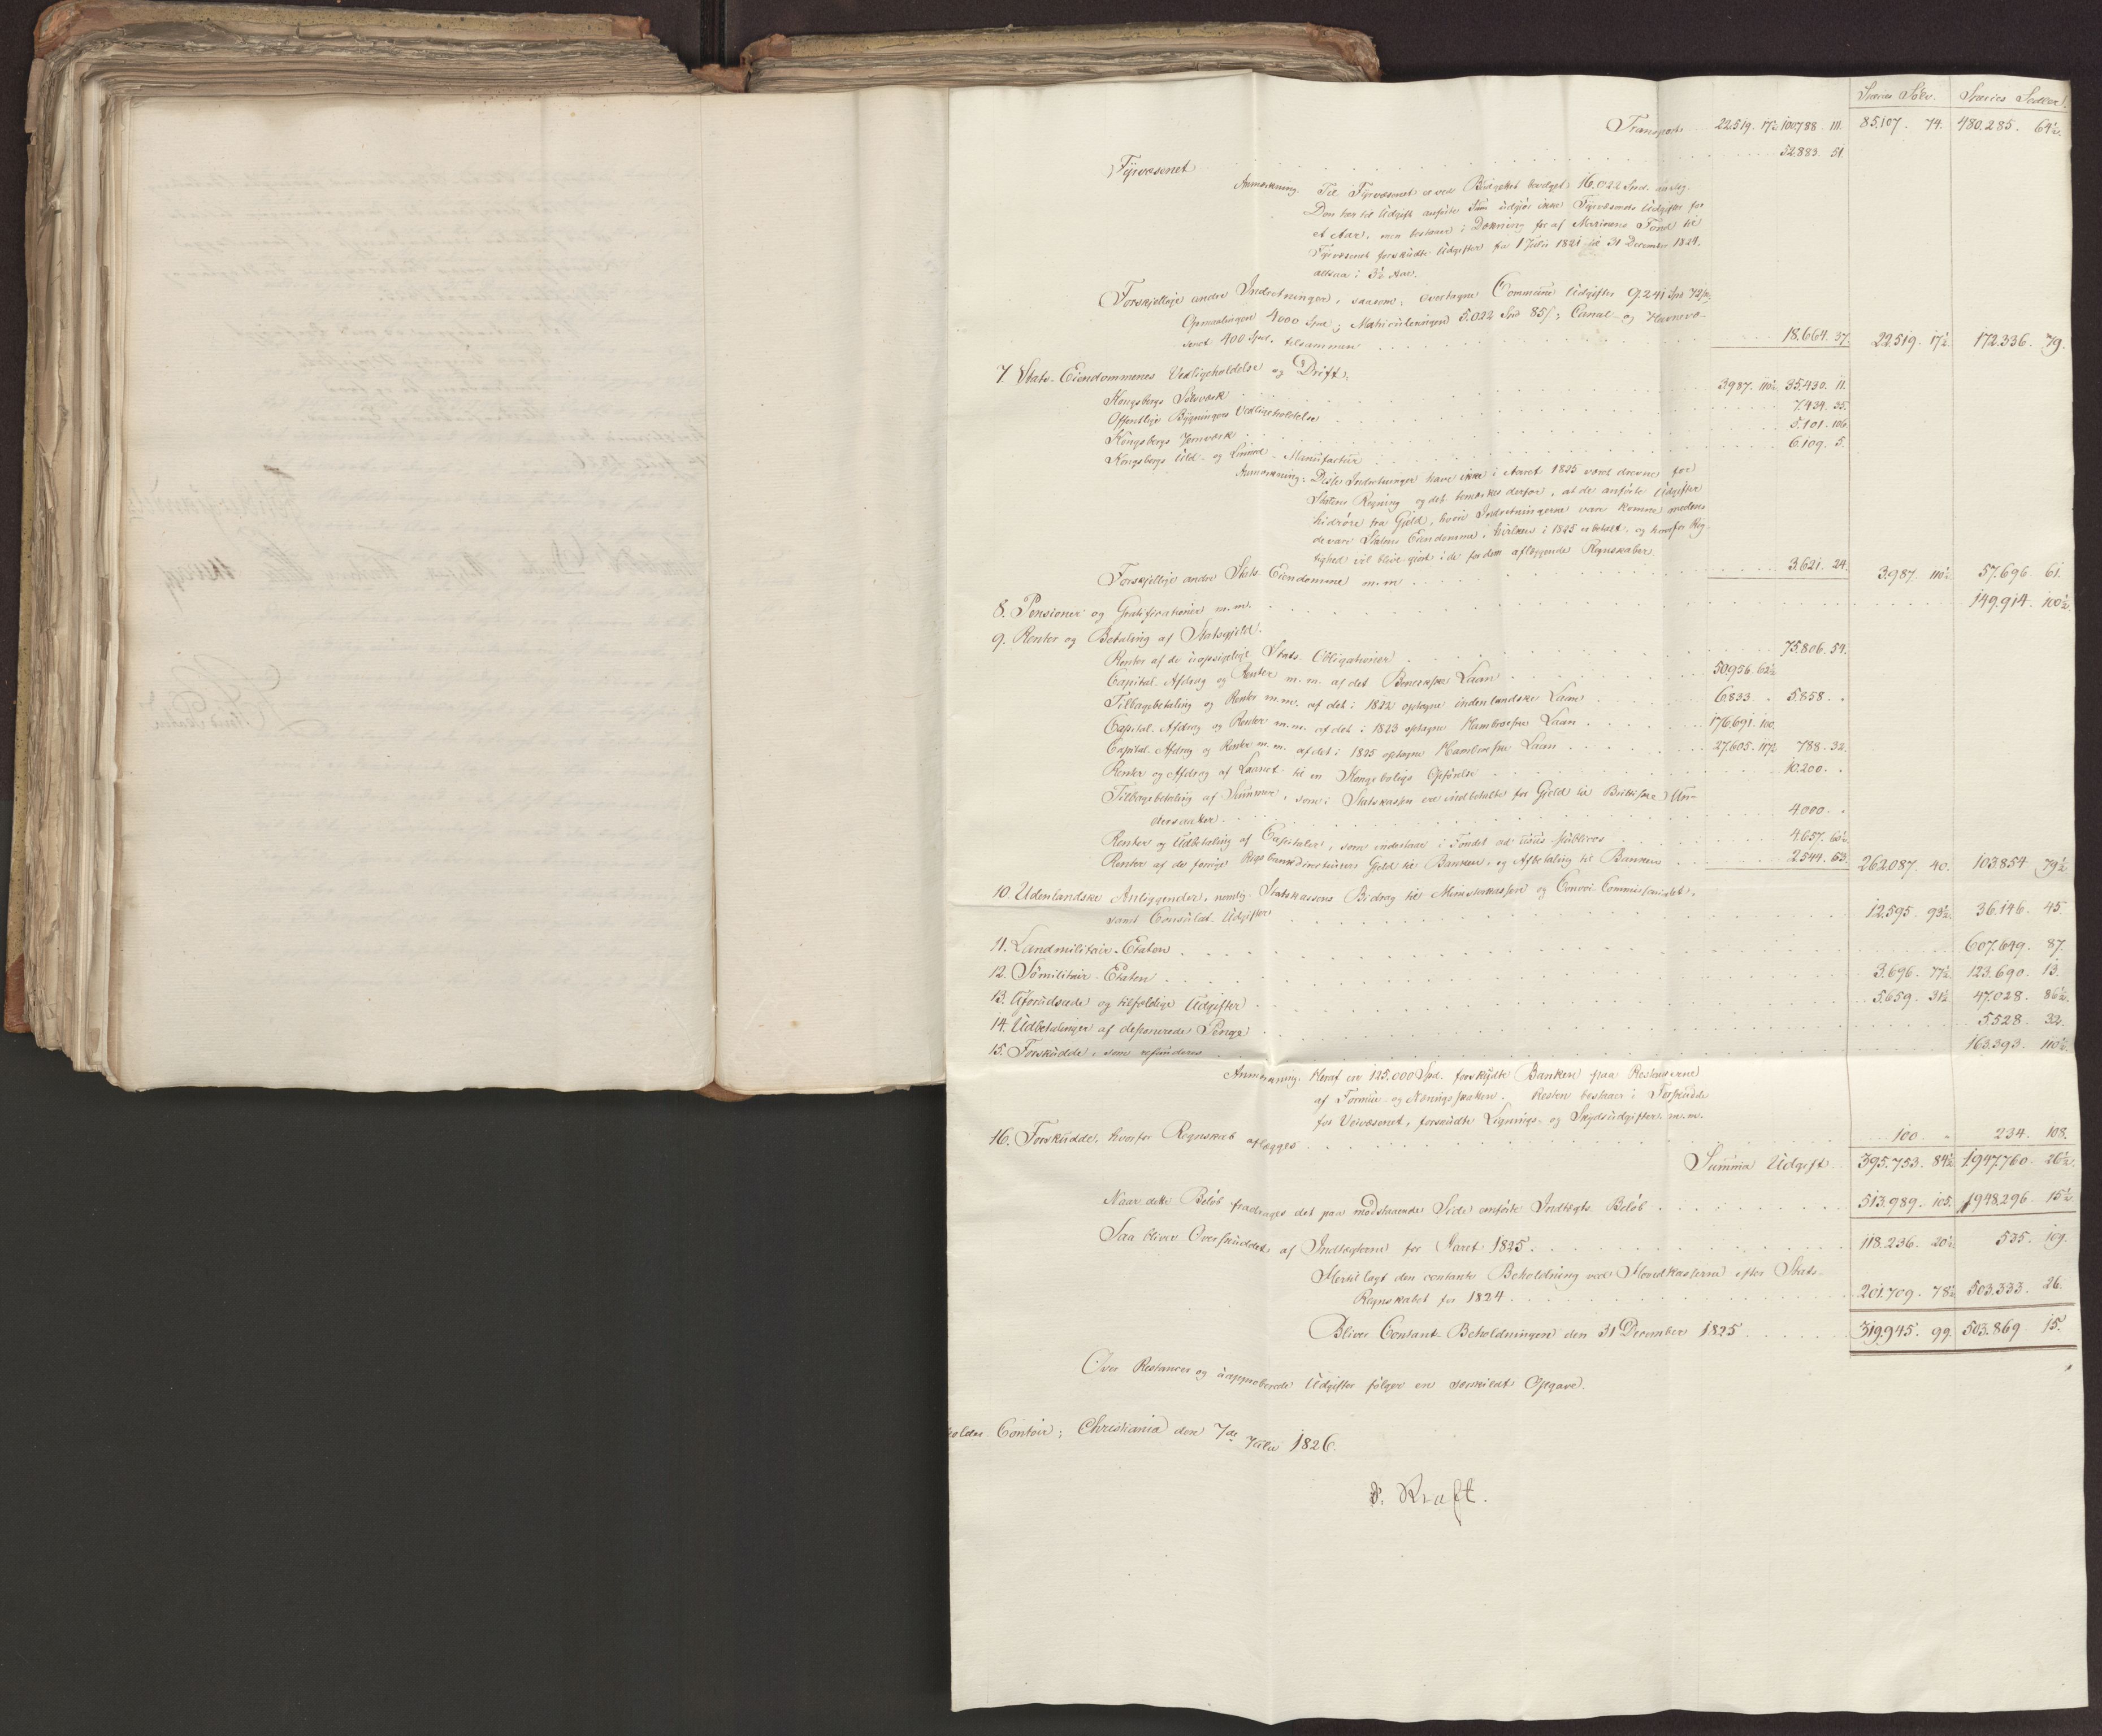 Species Sølv. Species Sedler.
Transport 22.519. 17½ 100.788. 111. 85.107. 74. 480.285. 64½.
Fyrvæsenet 52.883. 51.
Anmærkning. Til Fyrvæsenet er ved Budgettet bevilget 16.022 Spd. aarlig.
Den her til Udgift anførte Sum udgjør ikke Fyrvæsenets Udgifter for
et Aar, men bestaaer i Dækning for af Marinens Fond til
Fyrvæsenet forskudte Udgifter fra 1 Julii 1821 til 31 December 1824.
altsaa i 3½ Aar.
Forskjellige andre Indretninger, saasom: overtagne Commune Udgifter 9.241 Spd 72 ß;
Opmaalingen 4000 Spd.; Matriculeringen 5.022 Spd 85 ß; Canal- og Havnevæ-
senet 400 Spd. tilsammen 18.664. 37. 22.519. 17½. 172.336. 79.
7. Stats-Eiendommenes Vedligeholdelse og Drift:
Kongsbergs Sølvværk 3.987. 110½. 35.430. 11.
Offentlige Bygningers Vedligeholdelse 7.434. 35.
Kongsbergs Jernværk 5.101. 106.
Kongsbergs Uld- og Linned-Manufactur 6.109. 5.
Anmærkning: Disse Indretninger have ikke i Aaret 1825 været drevne for
Statens Regning og det bemærkes derfor, at de anførte Udgifter
hidrøre fra Gjeld, hvori Indretningerne vare komne medens
de vare Statens Eiendomme, hvilken i 1825 er betalt, og hvorfor Rig-
tighed vil blive gjort i de for dem aflæggende Regnskaber.
Forskjellige andre Stats-Eiendomme m.m. 3.621. 24. 3.987. 110½. 57.696. 61.
8. Pensioner og Gratificationer m.m. 149.914. 100½.
9. Renter og Betaling af Statsgjeld.
Renter af de uopsigelige Stats-Obligationer 75.806. 54.
Capital-Afdrag og Renter m.m. af det Beneckske Laan 50.956. 62½
Tilbagebetaling og Renter m.m. af det i 1822 optagne indenlandske Laan 6.833 - 5.858. -
Capital-Afdrag og Renter m.m. af det i 1823 optagne Hambroeske Laan 176.691. 100.
Capital-Afdrag og Renter m.m. af det i 1825 optagne Hambroeske Laan 27.605. 117½ 788. 32.
Renter og Afdrag af Laanet til en Kongeboligs Opførelse 10.200. -
Tilbagebetaling af Summer, som i Statskassen ere indbetalte for Gjeld til Brittiske Un-
dersaatter 4.000. -
Renter og Udbetaling af Capitaler, som indestaae i Fondet ad usus publicos 4.657. 60½
Renter af de forrige Rigsbankdirectioners Gjeld til Banken, og Afbetaling til Banken 2.544. 53. 262.087. 40. 103.854. 79½
10. Udenlandske Anliggender, nemlig Statskassens Bidrag til Ministerkassen og Convoi-Commissariatet,
samt Consulat-Udgifter 12.595. 93½. 36.146. 45.
11. Landmilitair-Etaten 607.649. 87.
12. Sømilitair-Etaten 3.696. 77½ 123.690. 13.
13. Uforudseede og tilfældige Udgifter 5.659. 31½ 47.028. 86½.
14. Udbetalinger af deponerede Penge 5.528. 32.
15. Forskudde, som refunderes 163.393. 110½.
Anmærkning. Heraf ere 125.000 Spd. forskudte Banken paa Restancerne
af Formue- og Nærings Skatten. Resten bestaaer i Forskudde
for Veivæsenet, forskudte Lignings- og Skydsudgifter m.m.
16. Forskudde, hvorfor Regnskab aflægges 100. - 234. 108.
Summa Udgift. 395.753. 84½ 1.947.760. 26½.
Naar dette Beløb fradrages det paa modstaaende Side anførte Indtægts Beløb 513.989. 105. 1.948.296. 15½
Saa bliver Overskuddet af Indtægterne for Aaret 1825. 118.236. 20½ 535. 109.
Hertil lagt den contante Beholdning ved Hovedkasserne efter Stats-
Regnskabet for 1824 201.709. 78½ 503.333. 26.
Bliver Contant-Beholdningen den 31 December 1825 319.945. 99. 503.869. 15.
Over Restancer og uapproberede Udgifter følger en særskildt Opgave.
holder Contoir; Christiania den 7de Julii 1826.
J. Kraft.